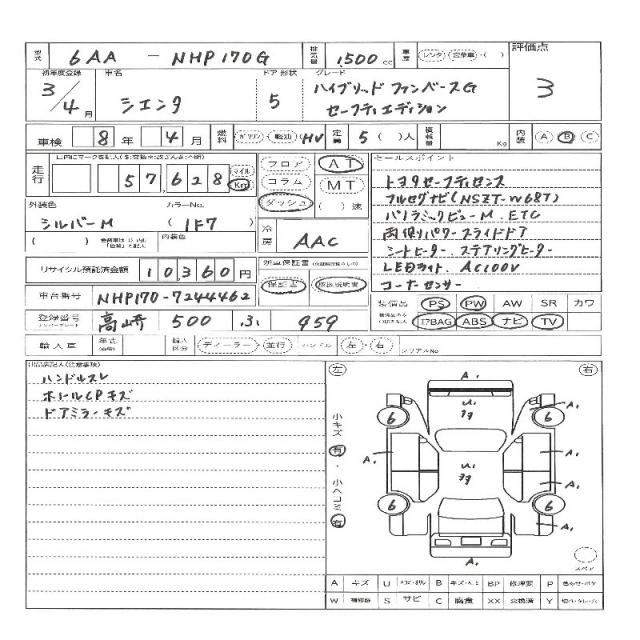 型式 6AA － NHP170G 排気量 1,500 cc 車歴 レンタ・営業車・( ) 評価点
初年度登録 車名 ドア 形状 グレード
3/4月 シエンタ 5 ハイブリッド ファンベースG 3
セーフティエディション
車検 8年 4月 燃料 ガソリン・軽油・(HV) 定員 5( )人 積載量 Kg 内装 A B C
走行 57,628 マイル Km
フロア コラム ダッシュ
AT MT ( )速
セールスポイント
トヨタセーフティセンス
フルセグナビ(NSZT-W68T)
パノラミックビューM. ETC
両側パワースライドドア
シートヒーター、ステアリングヒーター
LEDライト、AC100V
コーナーセンサー
外装色 カラーNo.
シルバーM ( 1F7 )
内装色
冷房 AAC
リサイクル預託済金額 10,360円
新車保証書
保証書 取扱説明書
車台番号 NHP170-7244462
装備品 PS PW AW SR カワ
AIRBAG ABS ナビ TV
登録番号 高崎 500 ふ 959
ナンバープレート
輸入車 年式 輸入区分 ディーラー・並行 ハンドル 左・右 シリアルNo
ハンドルスレ
ホイールCPキズ
ドアミラーキズ
左 右
小キズ 有 ・ 小ヘコミ 有
A₁
6 6
A₁
A₁ A₁
A₁
6 6
A₁
A₁
スペア
A キズ U B BP 修理要 P
W 補修跡 S サビ C 腐食 XX 交換済 Y